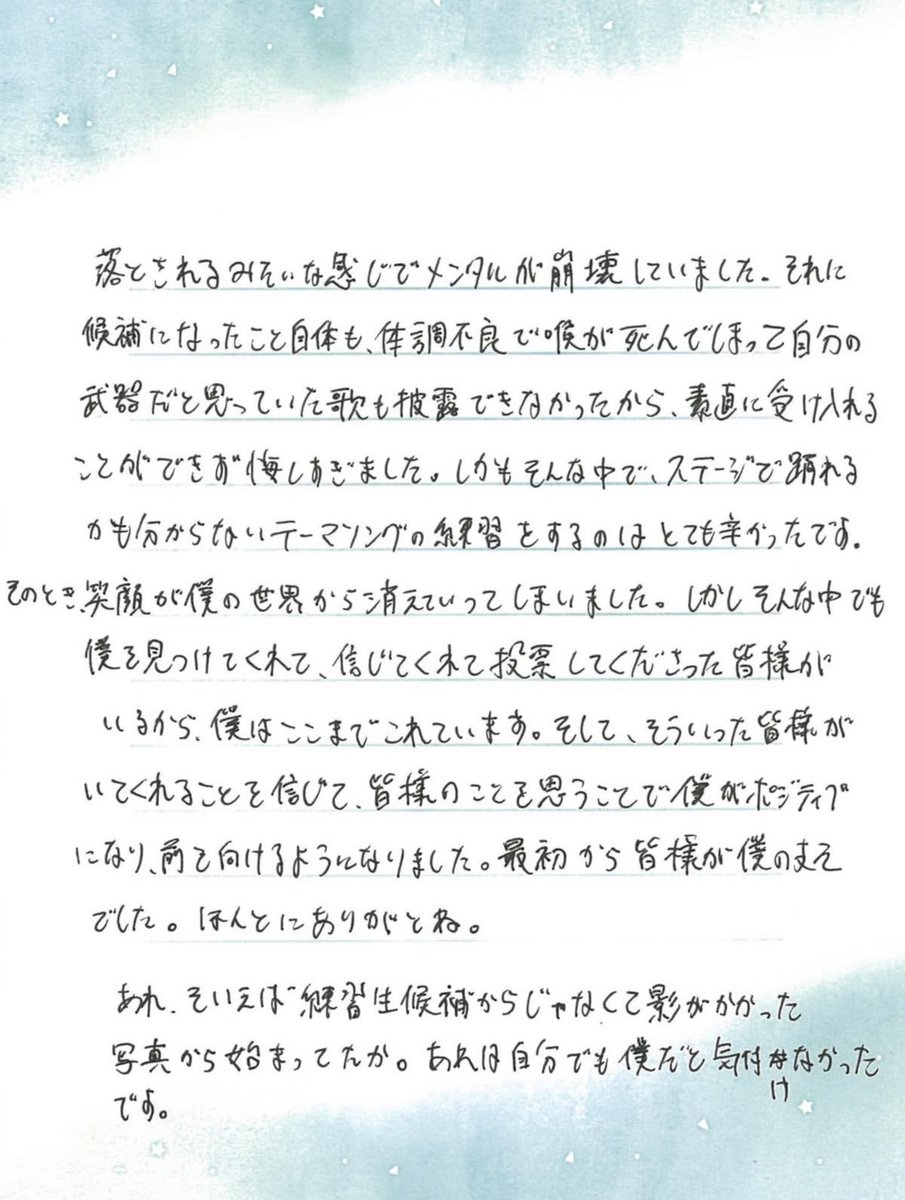 落とされるみたいな感じでメンタルが崩壊していました。それに
候補になったこと自体も、体調不良で喉が死んでしまって自分の
武器だと思っていた歌も披露できなかったから、素直に受け入れる
ことができず悔しすぎました。しかもそんな中で、ステージで踊れる
かも分からないテーマソングの練習をするのはとても辛かったです。
そのとき、笑顔が僕の世界から消えていってしまいました。しかしそんな中でも
僕を見つけてくれて、信じてくれて投票してくださった皆様が
いるから、僕はここまでこれています。そして、そういった皆様が
いてくれることを信じて、皆様のことを思うことで僕がポジティブ
になり、前を向けるようになりました。最初から皆様が僕の支え
でした。ほんとにありがとね。
あれ、そいえば練習生候補からじゃなくて影がかかった
写真から始まってたか。あれは自分でも僕だと気付けなかった
です。